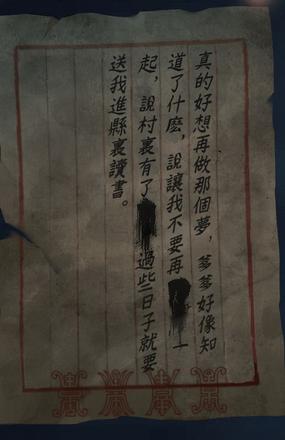 真的好想再做那個夢，爹爹好像知
道了什麽，說讓我不要再一
起，說村裏有了過些日子就要
送我進縣裏讀書。